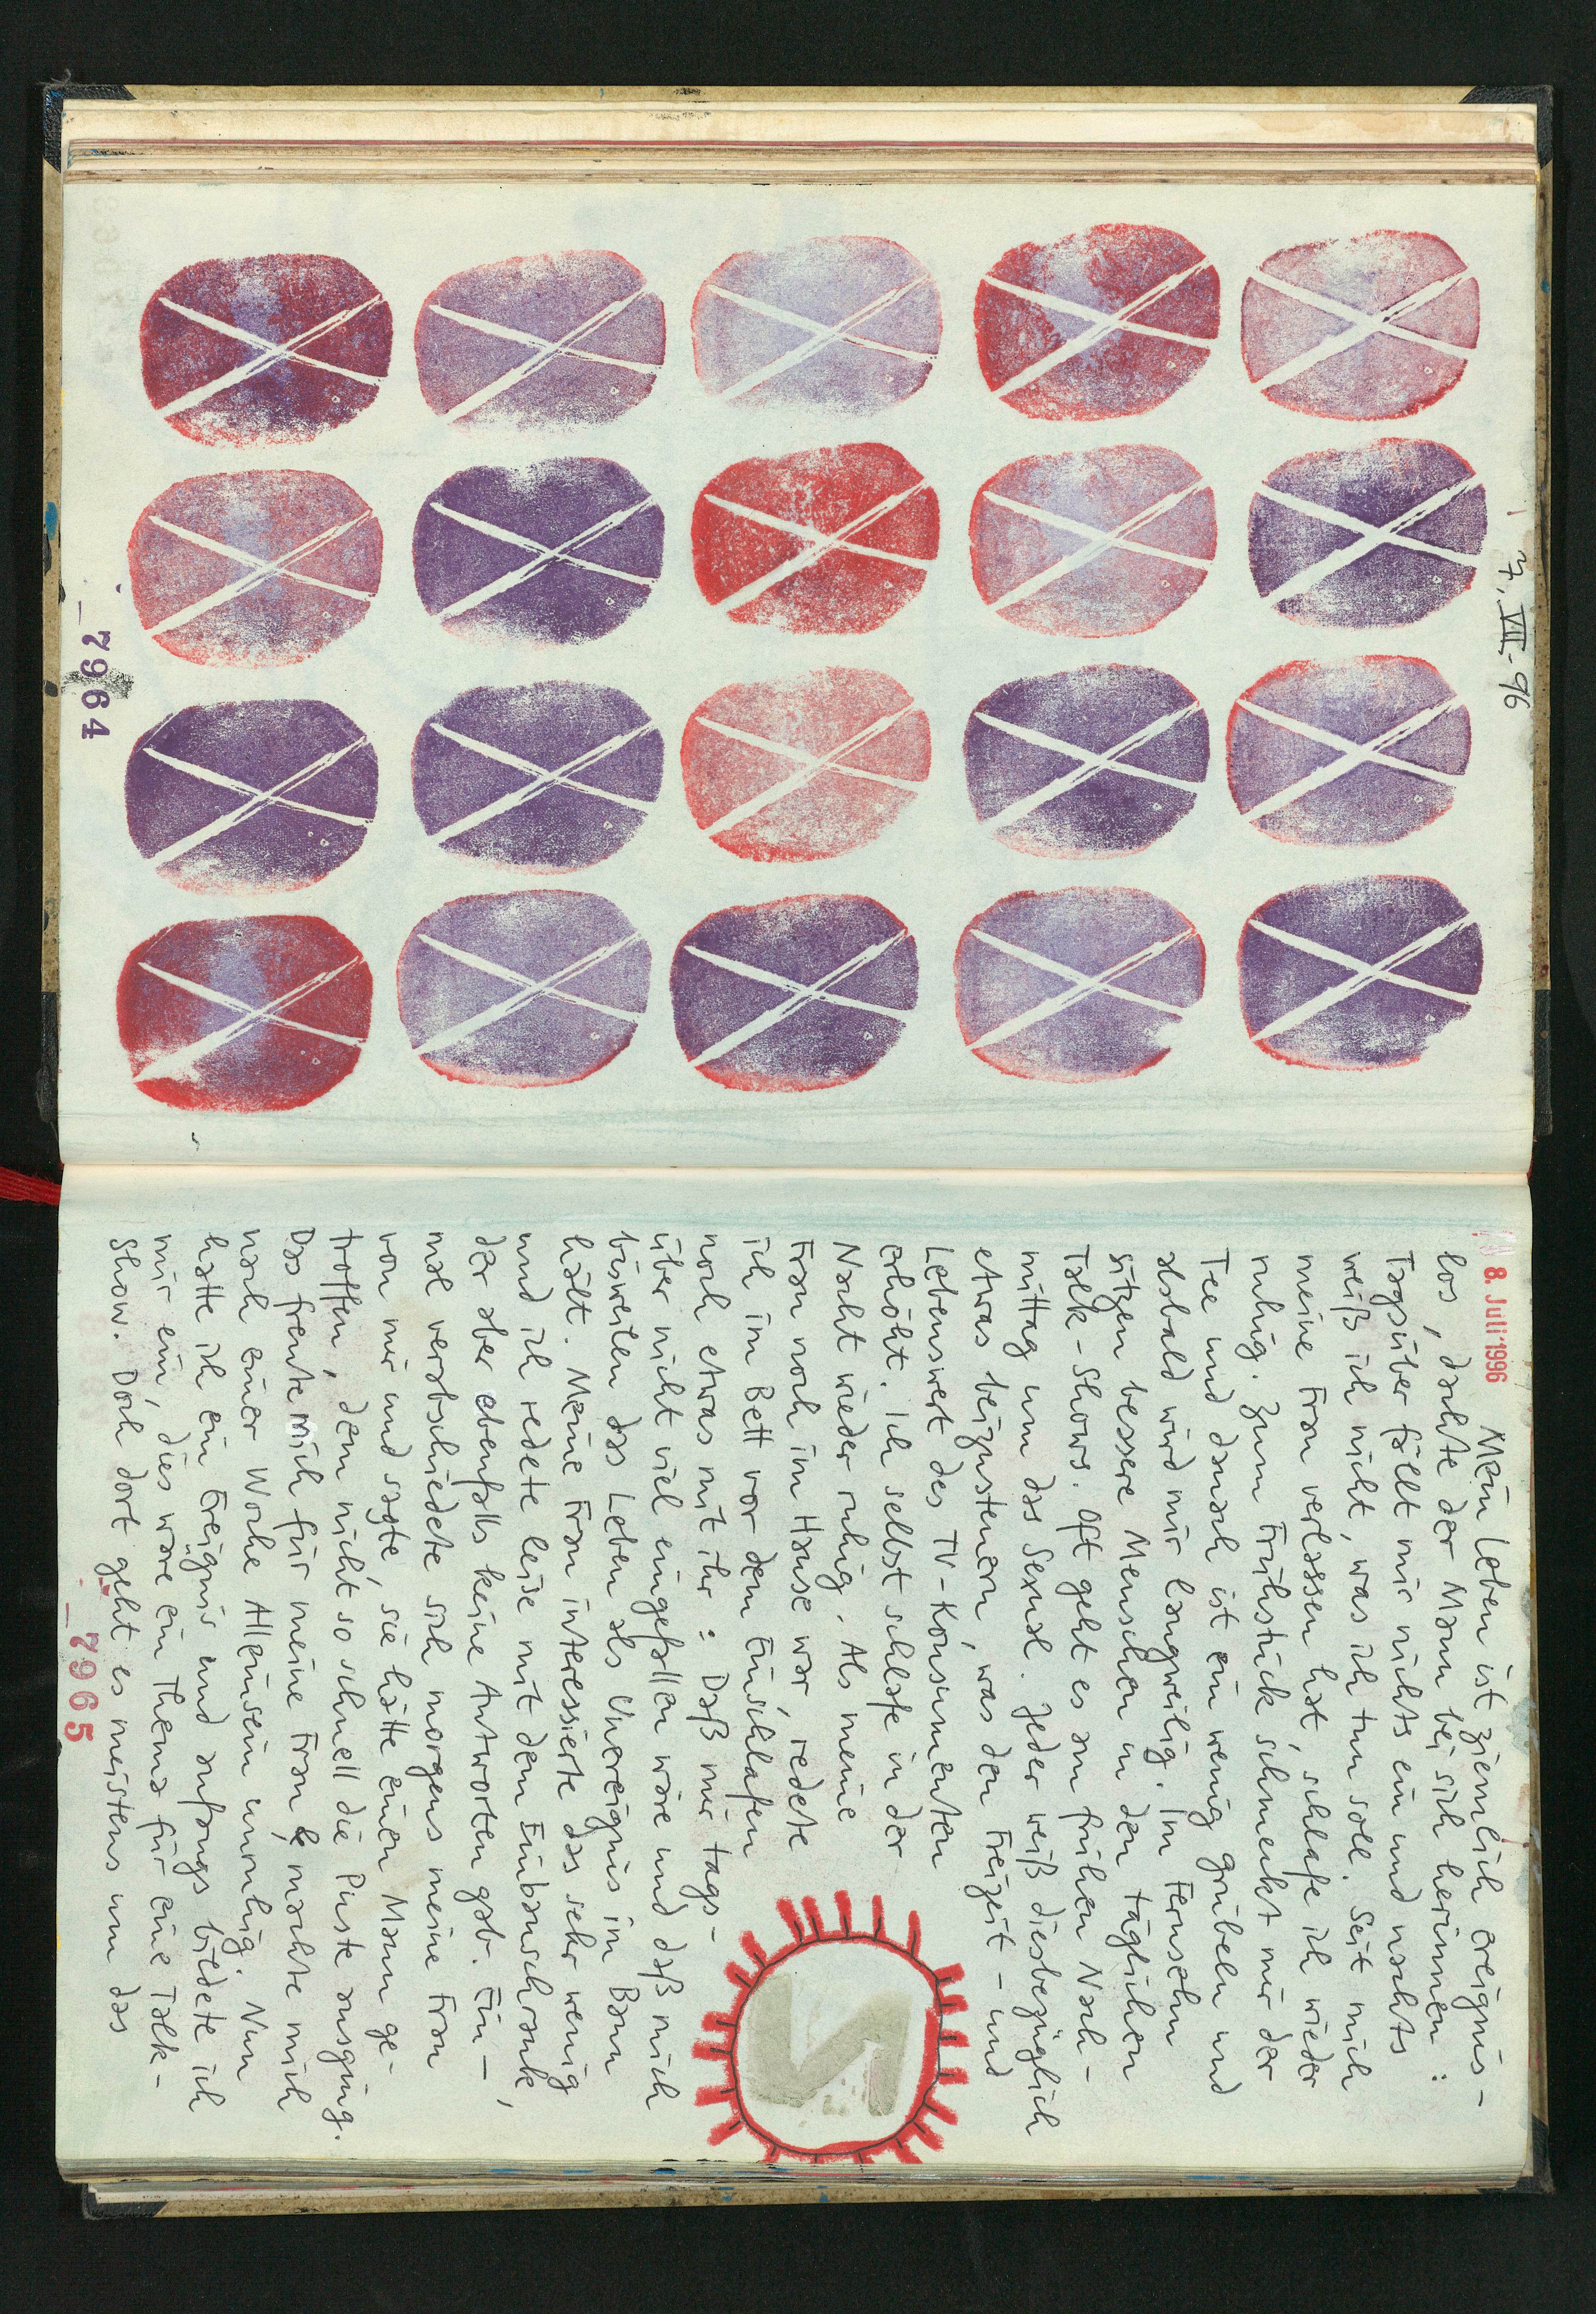 7. VII. 96
7964
8. Juli 1996
Mein Leben ist ziemlich ereignis-
los, dachte der Mann bei sich herinnen:
Tagsüber fällt mir nichts ein und nachts
weiß ich nicht, was ich tun soll. Seit mich
meine Frau verlassen hat, schlafe ich wieder
ruhig. Zum Frühstück schmeckt mir der
Tee und danach ist ein wenig grübeln und
alsbald wird mir langweilig. Im Fernsehn
sitzen bessere Menschen in den täglichen
Talk-Shows. Oft geht es am frühen Nach-
mittag um das Sexual. Jeder weiß diesbezüglich
etwas beizusteuern, was den Freizeit- und
Lebenswert des TV-Konsumenten
erhöht. Ich selbst schlafe in der
Nacht wieder ruhig. Als meine
Frau noch im Hause war, redete
ich im Bett vor dem Einschlafen
noch etwas mit ihr: Daß mir tags-
über nicht viel eingefallen wäre und daß mich
bisweilen das Leben als Unereignis im Bann
hält. Meine Frau interessierte das sehr wenig
und ich redete leise mit dem Einbauschrank,
der aber ebenfalls keine Antworten gab. Ein-
mal verabschiedete sich morgens meine Frau
von mir und sagte, sie hätte einen Mann ge-
troffen, dem nicht so schnell die Puste ausging.
Das freute mich für meine Frau, machte mich
nach einer Woche Alleinsein unruhig. Nun
hatte ich ein Ereignis und anfangs bildete ich
mir ein, dies wäre ein Thema für eine Talk-
Show. Doch dort geht es meistens um das
N
7965